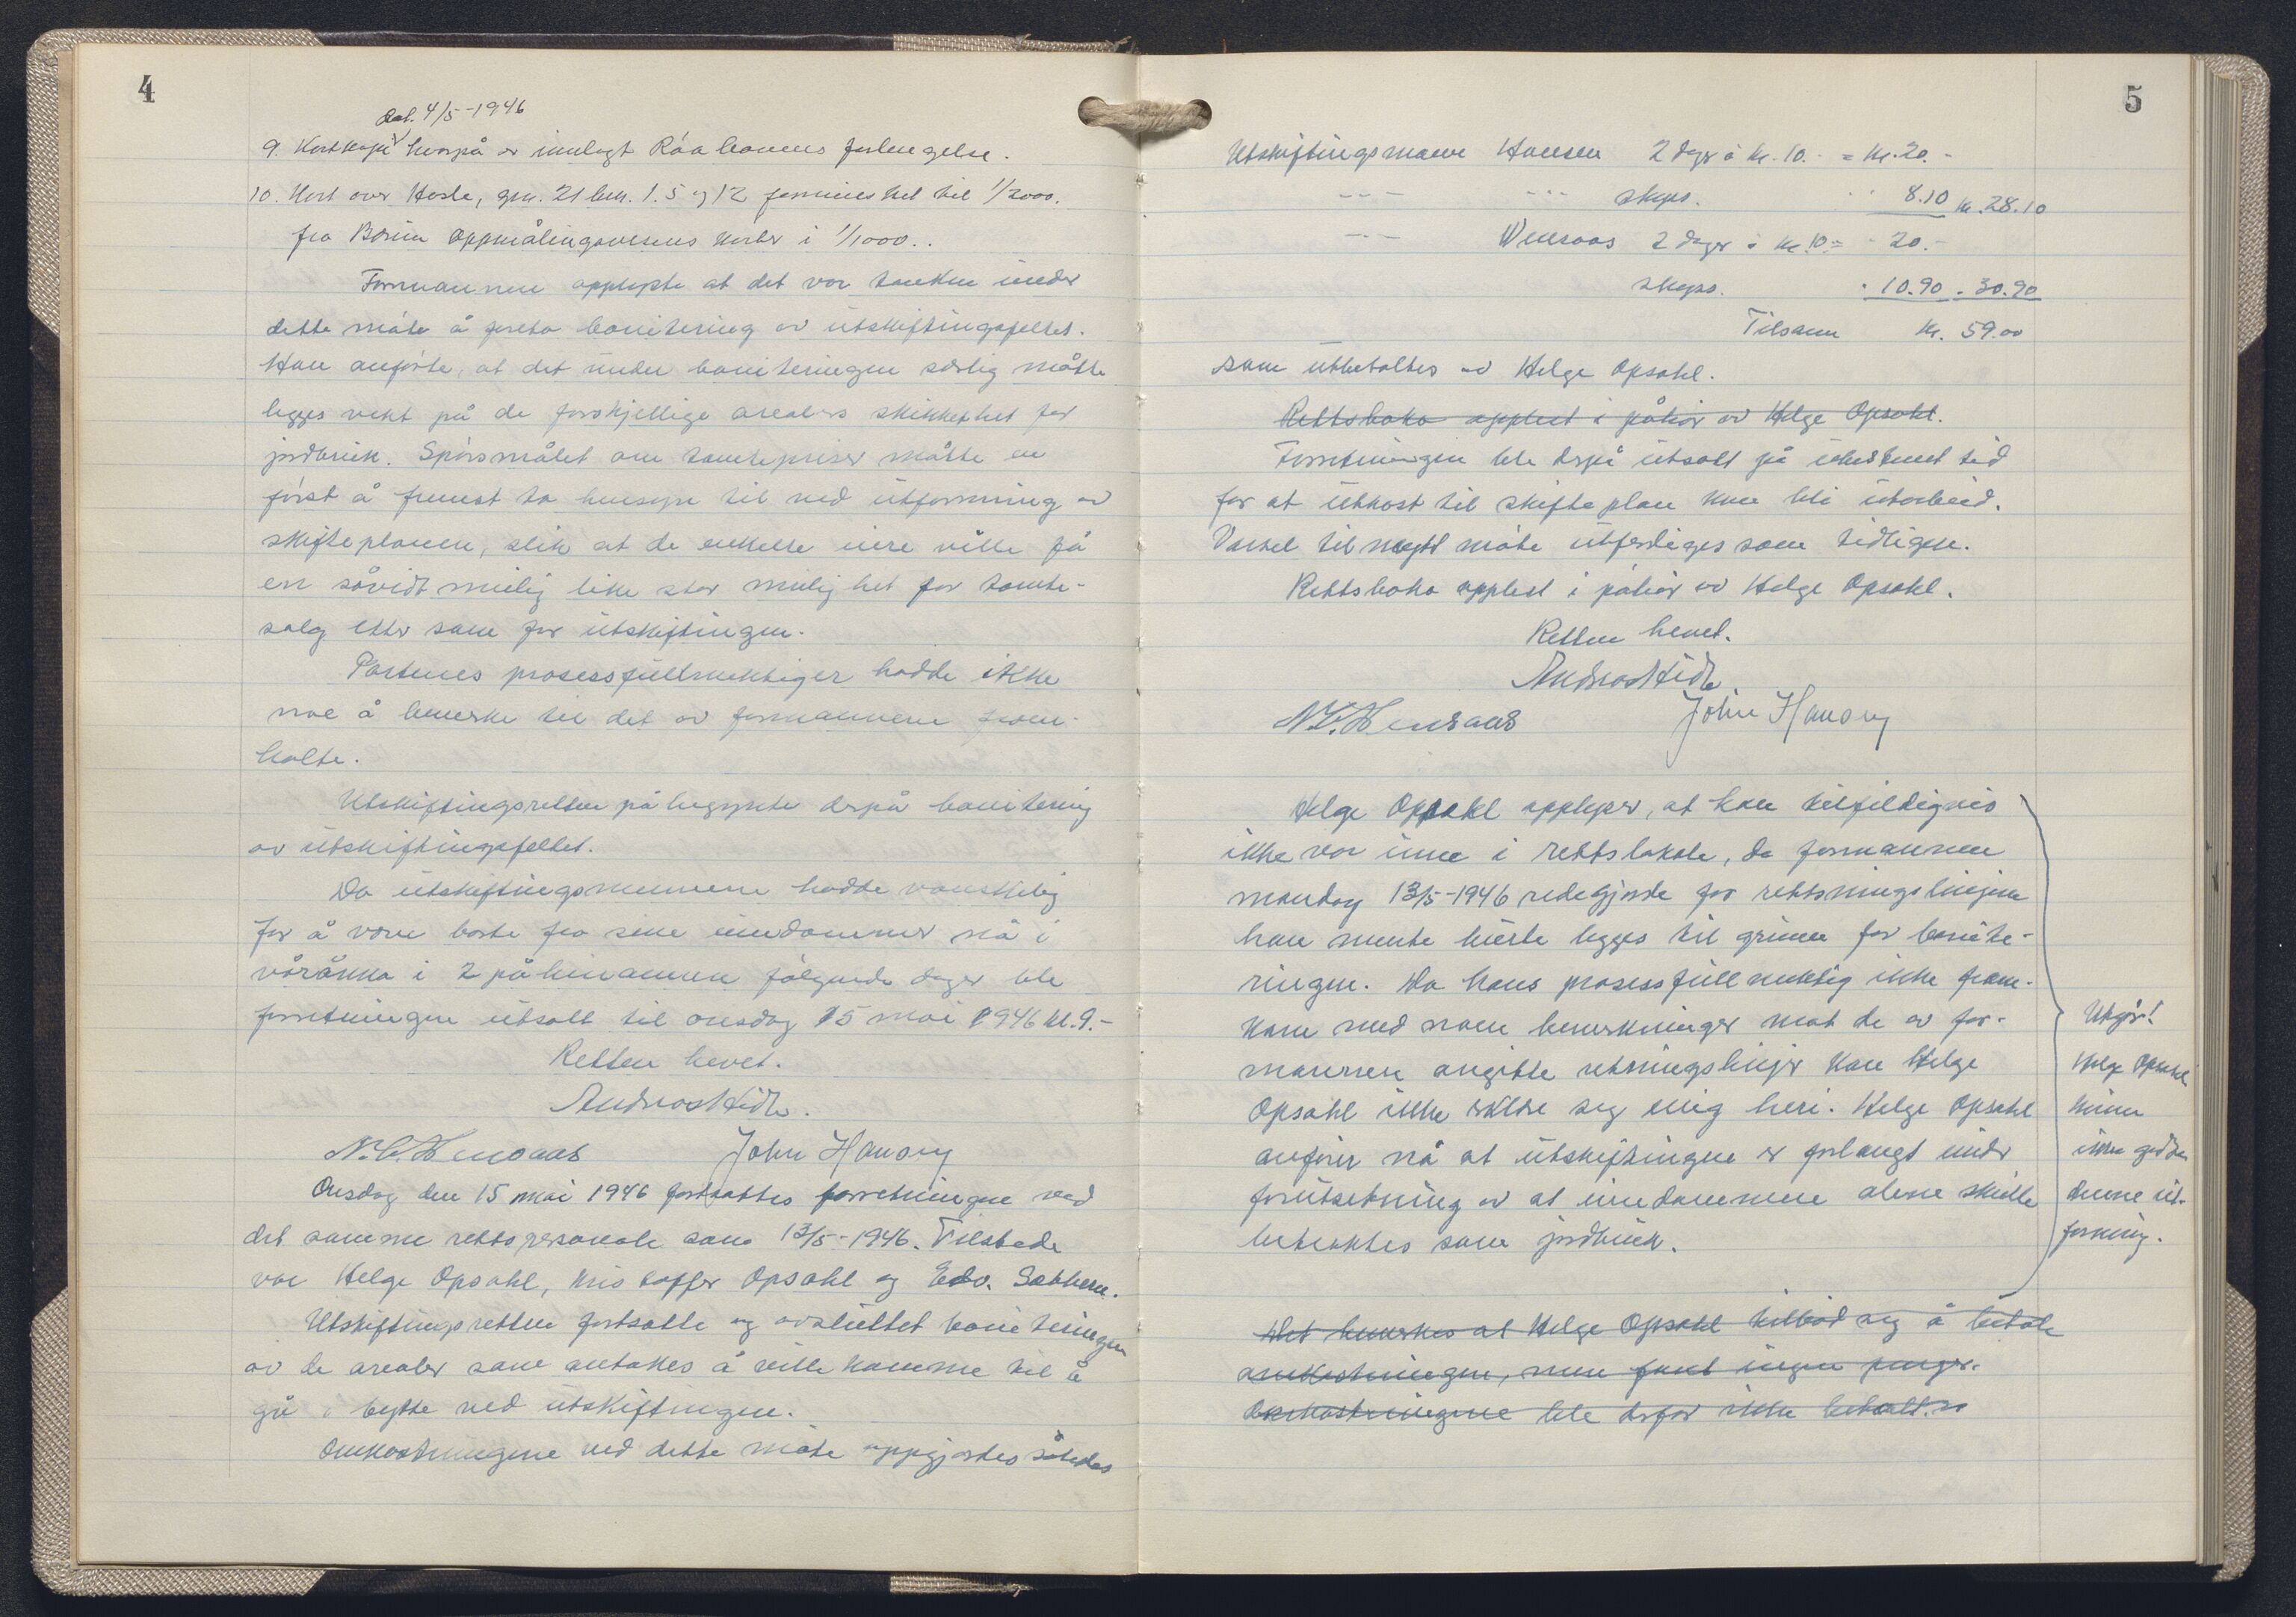 4
dat. 4/5-1946
9. Kartkopi hvorpå er innlagt Råabanens forlengelse.
10. Kart over Hosle, gnr. 21 bnr. 1.5 og 12 forminsket til 1/2000.
fra Bærum Oppmålingsvesens karter i 1/1000..
Formannen opplyste at det var tanken under
dette møte å foreta bonitering av utskiftingsfeltet.
Han anførte, at det under boniteringen særlig måtte
legges vekt på de forskjellige arealers skikkethet for
jordbruk. Spørsmålet om tomtepriser måtte en
først å fremst ta hensyn til ved utforming av
skifteplanen, slik at de enkelte eiere ville få
en såvidt mulig like stor mulighet for tomte-
salg etter som før utskiftingen.
Partenes prosessfullmektiger hadde ikke
noe å bemerke til det av formannen frem-
holte.
Utskiftingsretten påbegynte derpå bonitering
av utskiftingsfeltet.
Da utskiftingsmennene hadde vanskelig
for å være borte fra sine eiendommer nå i
våronna i 2 på hinannen følgende dager ble
forretningen utsatt til onsdag 15 mai 1946 kl. 9.-
Retten hevet.
Andreas Hidle.
N. C. Wensaas John Hansen
Onsdag den 15 mai 1946 fortsattes forretningen ved
det samme rettspersonale som 13/5-1946. Tilstede
var Helge Opsahl, Kristoffer Opsahl og Edv. Sækhem.
Utskiftingsretten fortsatte og avsluttet boniteringen
av de arealer som antakes å ville komme til å
gå i bytte ved utskiftingen.
Omkostningene ved dette møte oppgjordes således
5
Utskiftingsmann Hansen 2 dager à kr. 10.- = kr. 20.-
--- --- skyss. 8.10 kr. 28.10
--- Wensaas 2 dager à kr. 10 = - 20.-
skyss. - 10.90 - 30.90
Tilsamm kr. 59.00
som utbetaltes av Helge Opsahl.
Rettsboka opplest i påhør av Helge Opsahl.
Forretningen ble derpå utsatt på ubestemt tid
for at utkast til skifteplan kan bli utarbeid.
Varsel til nytt møte utferdiges som tidligere.
Rettsboka opplest i påhør av Helge Opsahl.
Retten hevet.
Andreas Hidle
N. C. Wensaas John Hansen
Helge Opsahl opplyser, at han tilfeldigvis
ikke var inne i rettslokale, da formannen
mandag 13/5-1946 redegjorde for retningslinjene
han mente burde legges til grunn for bonite-
ringen. Da hans prosessfullmektig ikke frem-
kom med noen bemerkninger mot de av for-
mannen angitte retningslinjer kan Helge
Opsahl ikke erklære seg enig heri. Helge Opsahl
anfører nå at utskiftingen er forlangt under
forutsetning av at eiendommene alene skulle
betraktes som jordbruk.
Utgår!
Helge Opsahl
kunne
ikke godta
denne ut-
forming.
Det bemerkes at Helge Opsahl tilbød seg å betale
omkostningene, men fant ingen penger.
Omkostningene ble derfor ikke betalt.